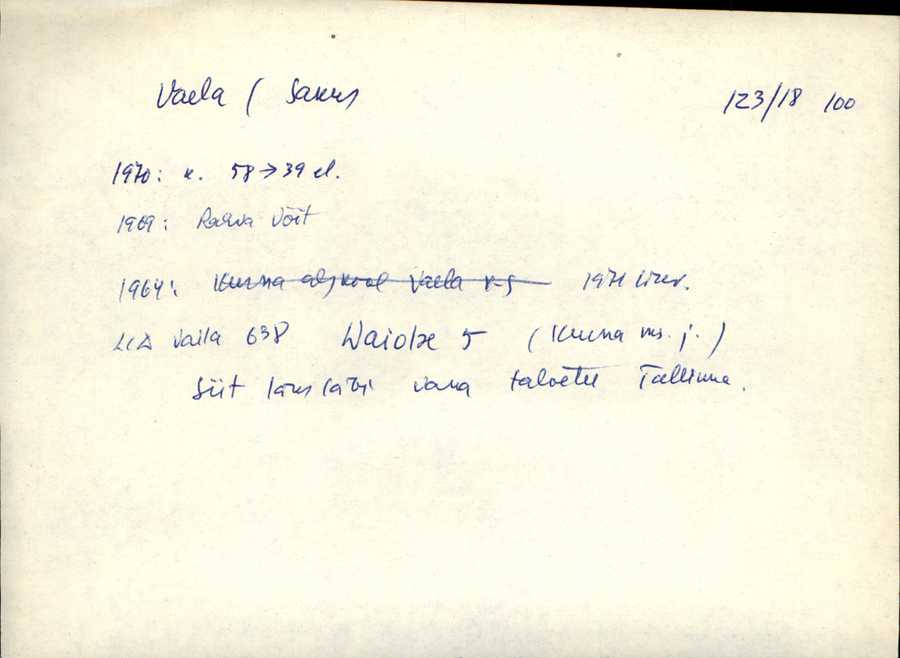 Vaela ( Sakus 123/18 100
1970: k. 58→39 el.
1969: Rahva Võit
1964: Kurna algkool Vaela k-s 1971
Vaila 638 Waiole 5 (Kurna ms. j.)
Siit läks läbi vana talvetee Tallinna.